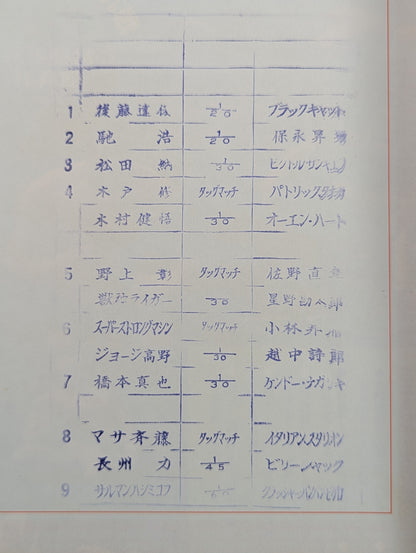 1 後藤達俊 1/20 ブラックキャット
2 馳 浩 1/20 保永昇男
3 松田 納 1/30 ビクトル・ザンギエフ
4 木戸 修 タッグマッチ パトリック
木村健悟 1/30 オーエン・ハート
5 野上 彰 タッグマッチ 佐野直
獣神ライガー 30 星野勘太郎
6 スーパーストロングマシン タッグマッチ 小林
ジョージ高野 1/30 越中詩郎
7 橋本真也 1/30 ケンドー・ナガサキ
8 マサ斉藤 タッグマッチ イタリアン・スタリオン
長州 力 1/45 ビリー・ジャック
9 サルマン・ハシミコフ 60 ビガロ